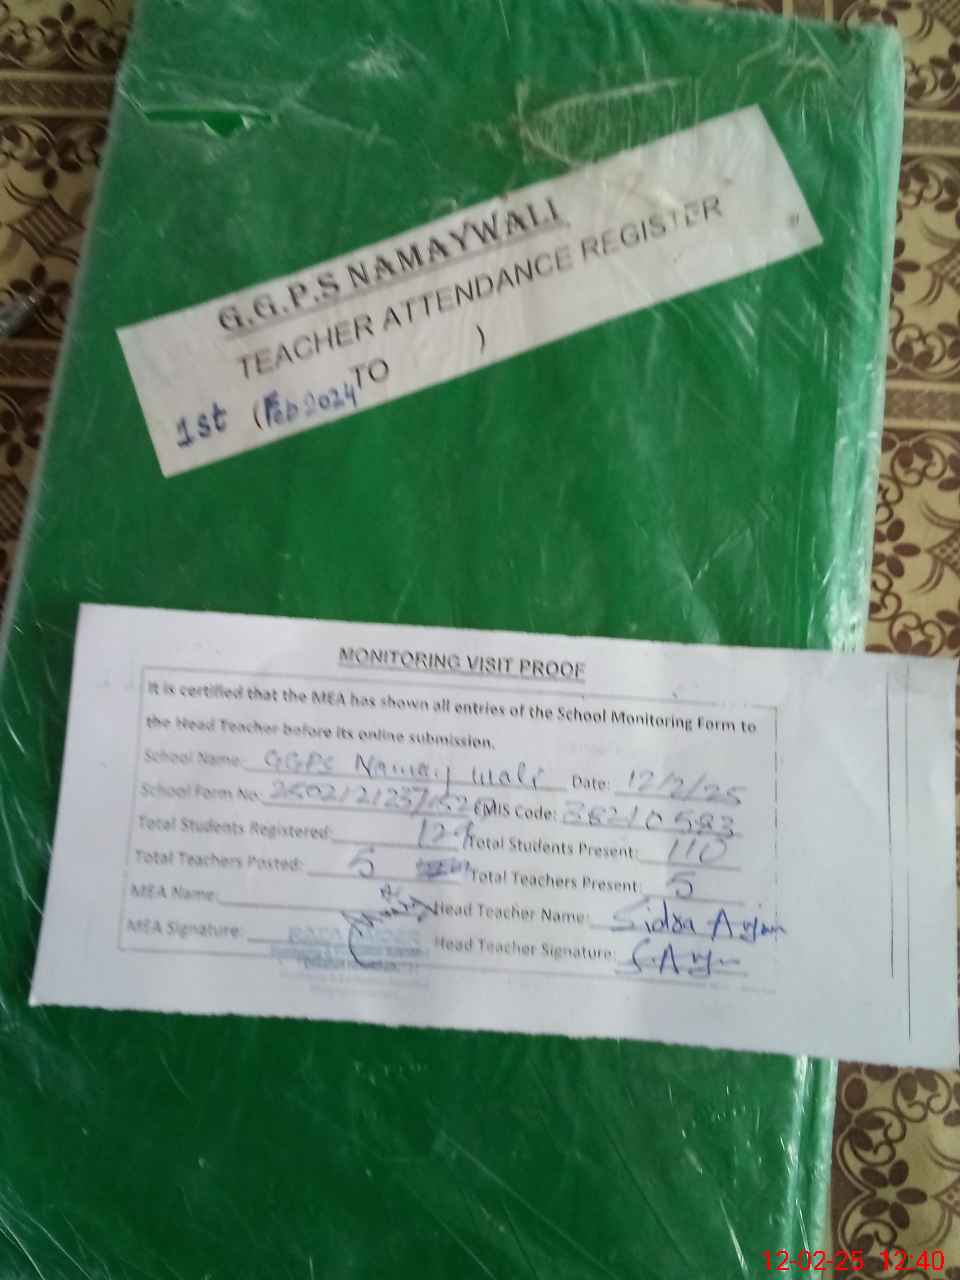 G.G.P.S NAMAYWALI
TEACHER ATTENDANCE REGISTER
1st (Feb 2024 TO )
MONITORING VISIT PROOF
It is certified that the MEA has shown all entries of the School Monitoring Form to
the Head Teacher before its online submission.
School Name: GGPS Namay wali Date: 12/2/25
School Form No: EMIS Code:
Total Students Registered: Total Students Present: 110
Total Teachers Posted: 5 Total Teachers Present: 5
MEA Name: Head Teacher Name: Sidra
MEA Signature: Head Teacher Signature:
12-02-25 12:40